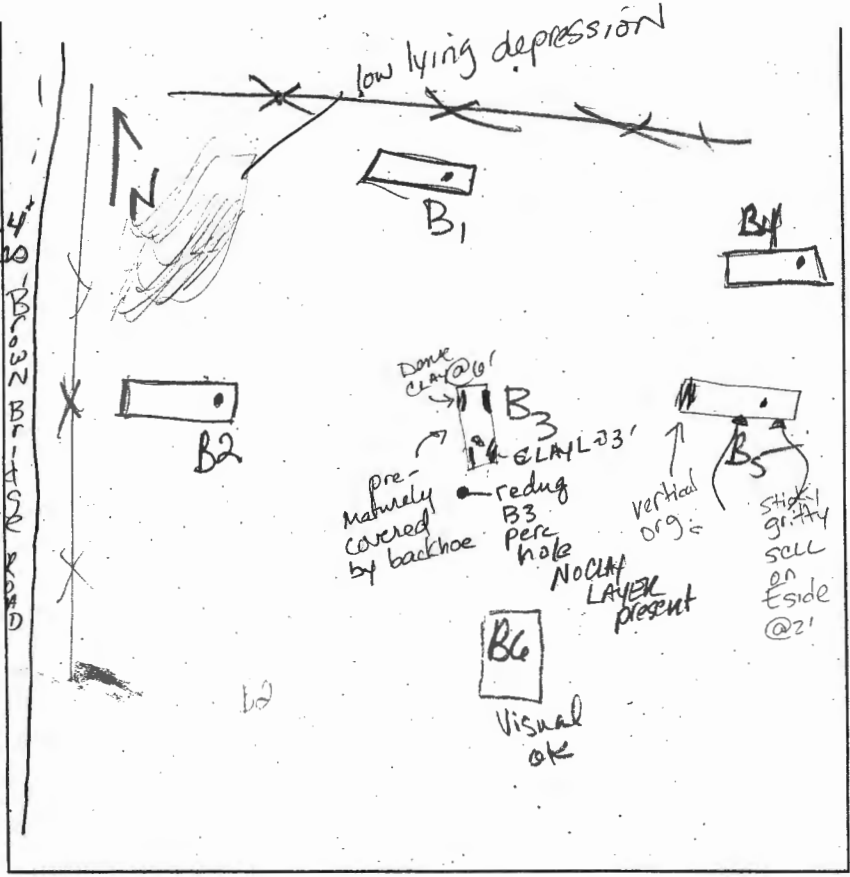 low lying depression
N
B1
B4
BROWN BRIDGE ROAD
B2
CLAY@6'
B3
CLAYL-3'
pre-
maturely
covered
by backhoe
redug
B3
perc
hole
NO CLAY
LAYER
present
B5
vertical
org.
sticky
gritty
SCLL
on
Eside
@2'
B6
Visual
ok